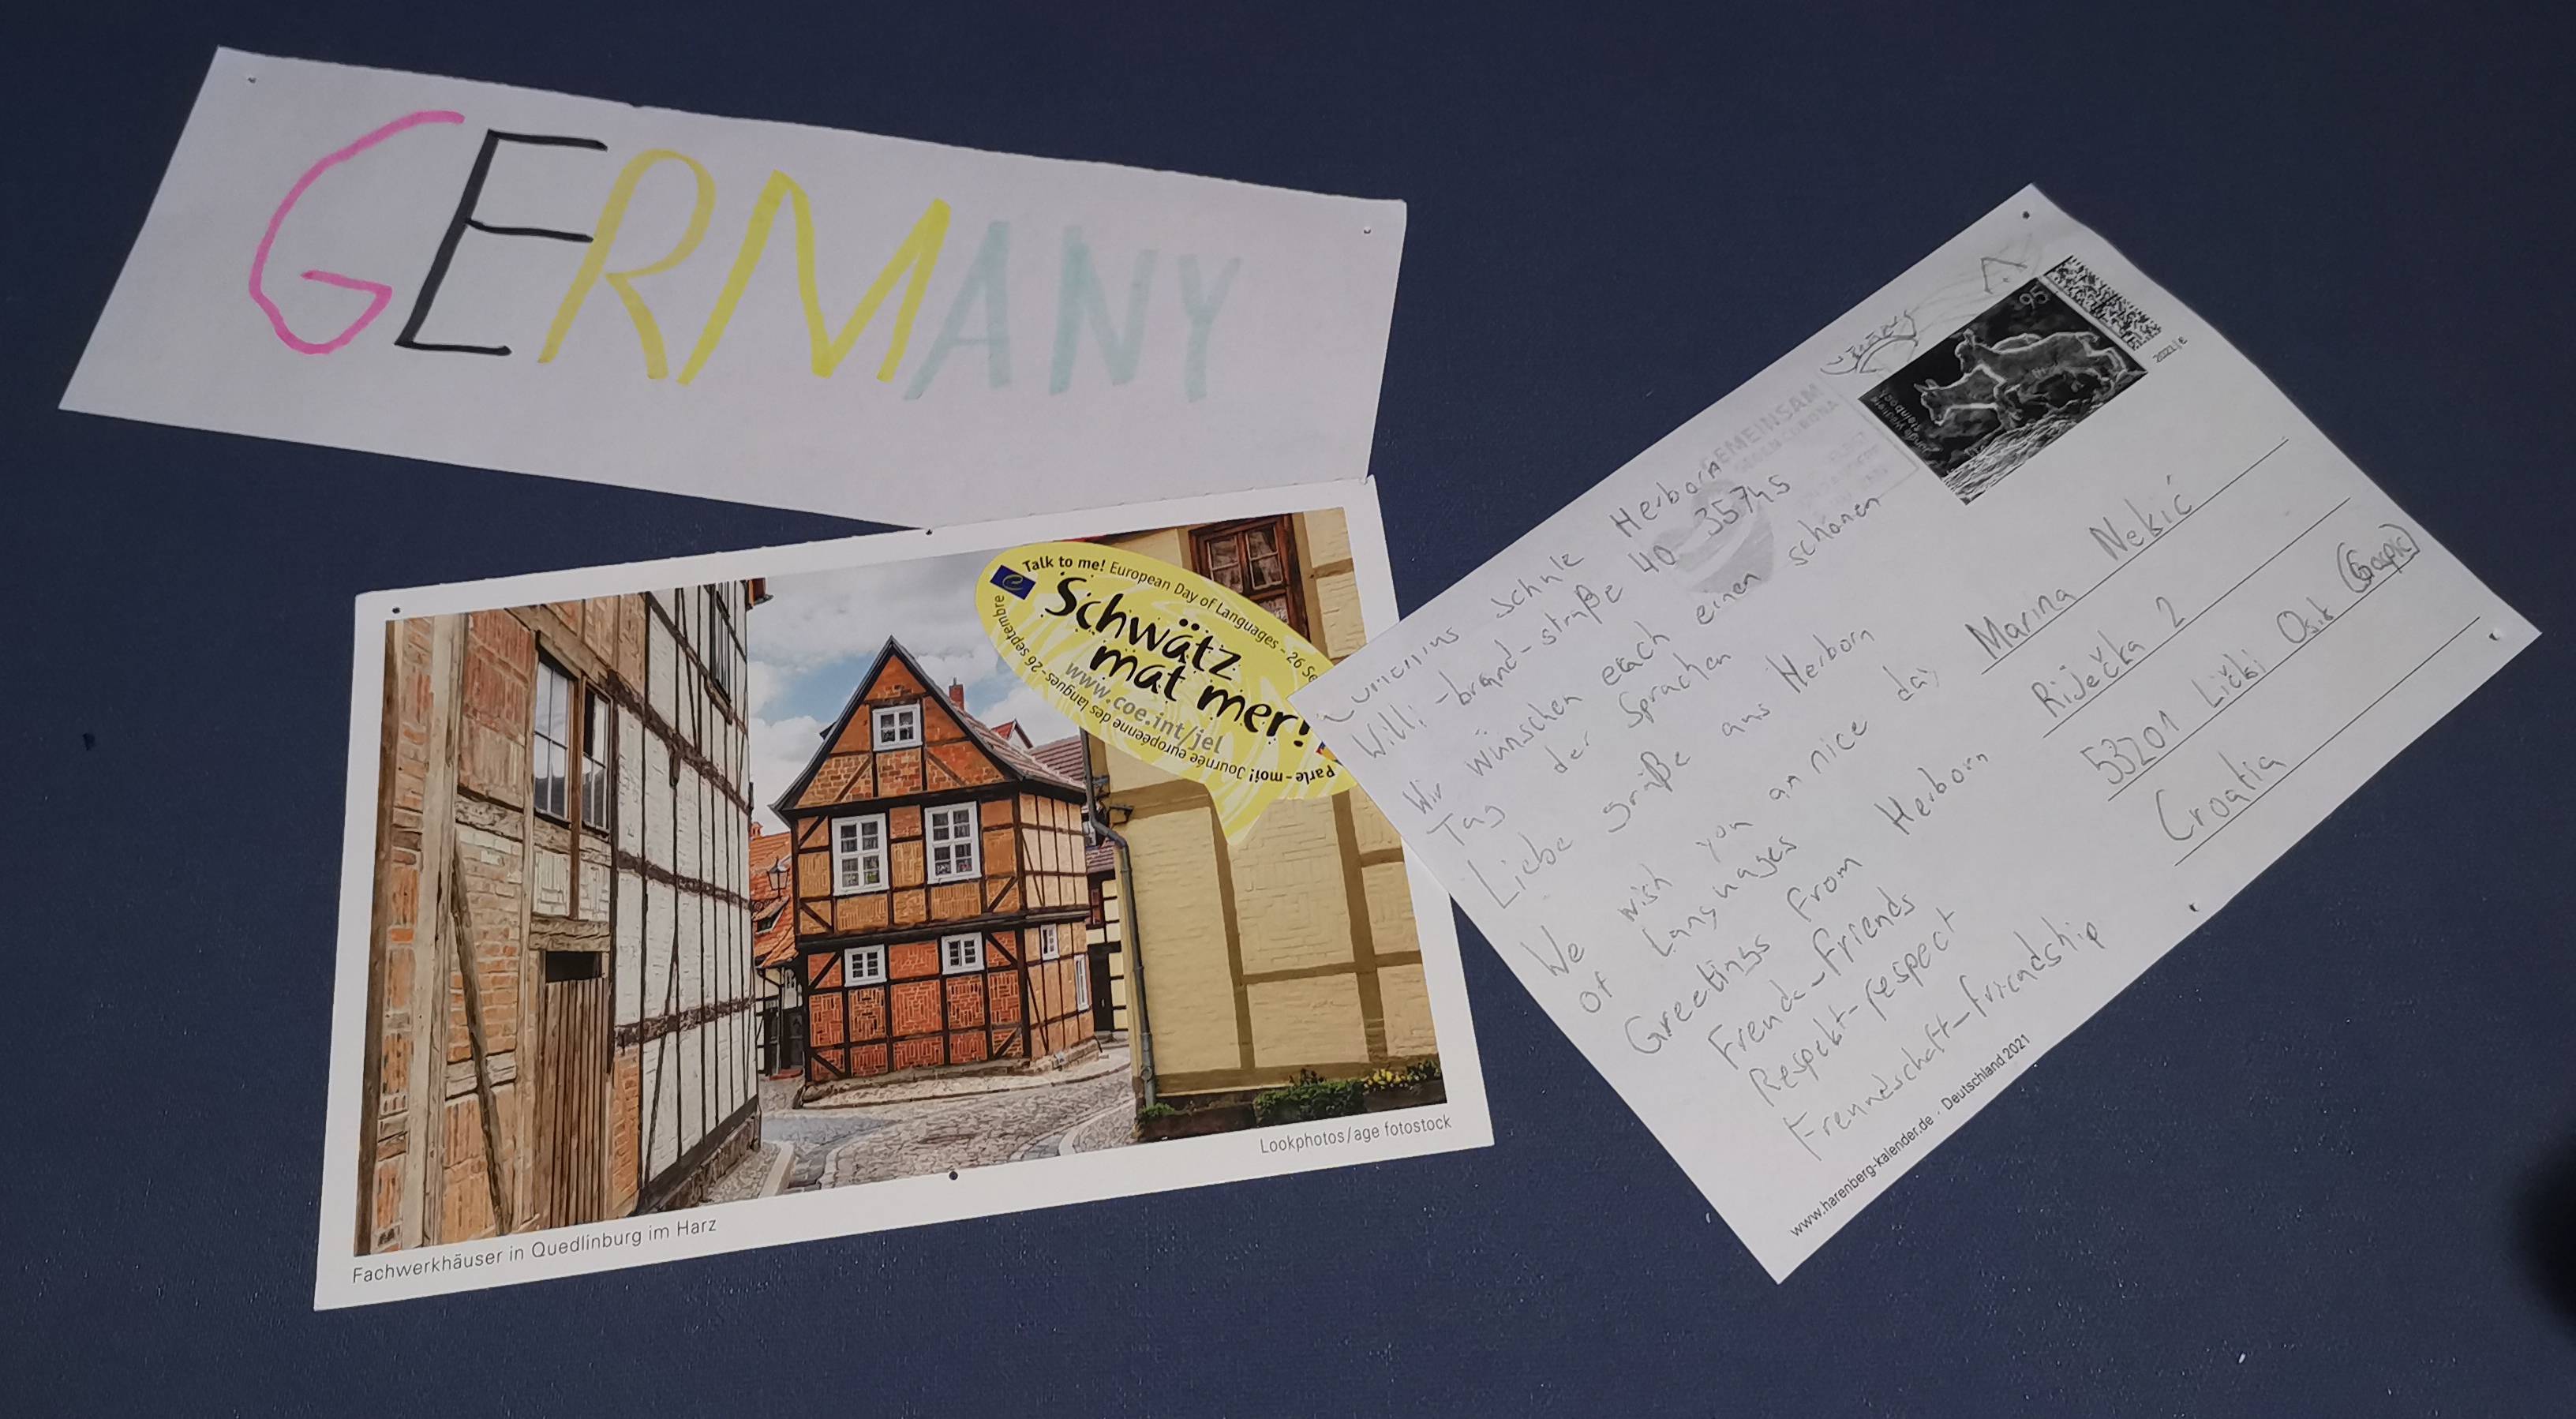 GERMANY
Talk to me! European Day of Languages - 26 Se
Schwätz
mat mer!
www.coe.int/jel
Parle-moi! Journée européenne des langues - 26 septembre
Lookphotos/age fotostock
Fachwerkhäuser in Quedlinburg im Harz
Schule Herborn
Willi-brand-straße 40 35745
Wir wünschen each einen schönen
Tag der Sprachen
Liebe grüße aus Herborn
We wish you an nice day
of Languages
Greetings from Herborn
Freude-friends
Respekt-respect
Freundschaft-friendship
www.harenberg-kalender.de · Deutschland 2021
GEMEINSAM
GEGEN CORONA
95
2021|E
Marina Nekić
Riječka 2
53201 Lički Osik (Gospić)
Croatia